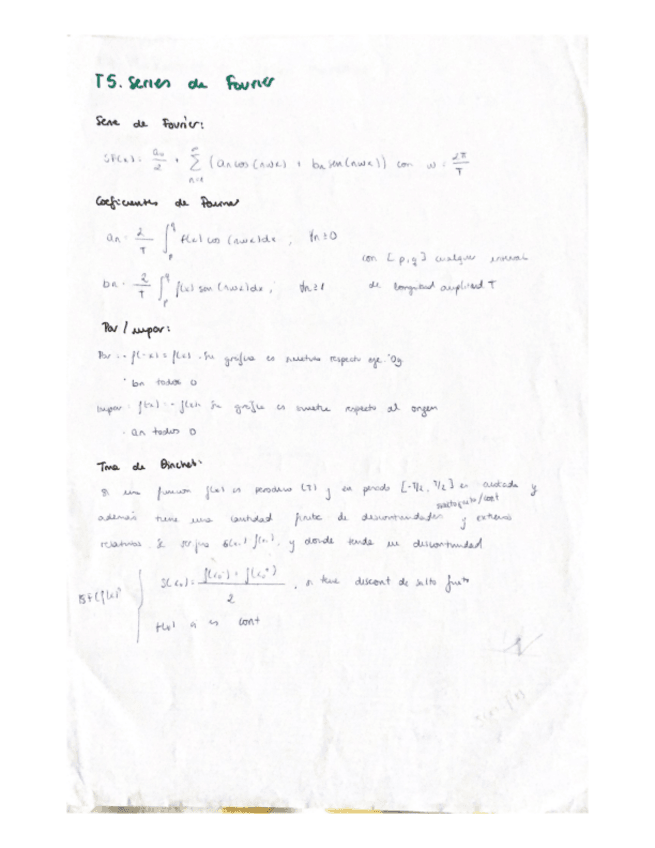 T5. Series de Fourier
Serie de Fourier:
SF(x) = a₀/2 + ∑ n=1 ∞ (an cos (nωx) + bn sen (nωx)) con ω = 2π/T
Coeficientes de Fourier
an = 2/T ∫ p q f(x) cos (nωx) dx, ∀n≥0
con [p,q] cualquier intervalo
bn = 2/T ∫ p q f(x) sen (nωx) dx, ∀n≥1
de longitud amplitud T
Par / impar:
Par: · f(-x) = f(x). Su grafica es simetrica respecto eje Oy
· bn todos 0
Impar · f(-x) = -f(x). Su grafica es simetrica respecto al origen
· an todos 0
Tma de
Si una funcion f(x) es periodica (T) y en periodo [-T/2, T/2] es acotada y
salto finito/cont
además tiene una cantidad finita de discontinuidades y extremos
relativos. f(x), y donde tenga una discontinuidad
S(x₀) = f(x₀⁻) + f(x₀⁺) / 2, si tiene discont de salto finito
f(x) si es cont